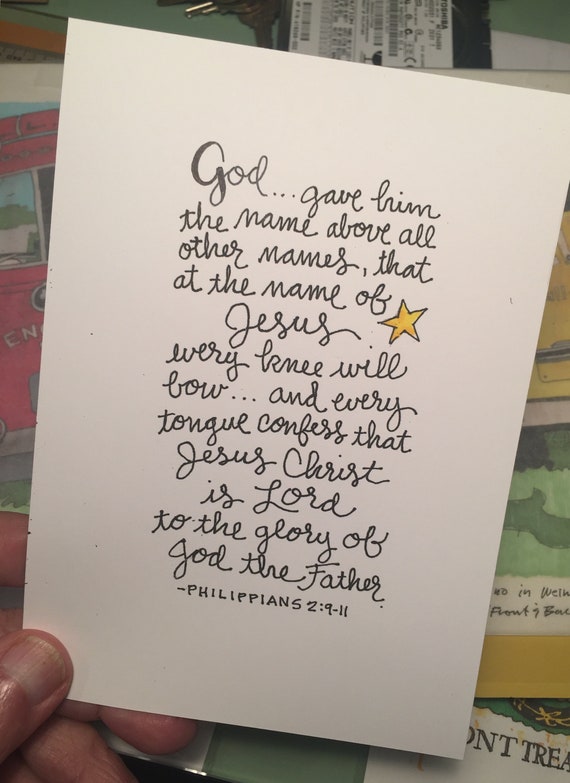 TOSHIBA
God... gave him
the name above all
other names, that
at the name of
Jesus
every knee will
bow... and every
tongue confess that
Jesus Christ
is Lord
to the glory of
God the Father.
-PHILIPPIANS 2:9-11
EN
in
Front of
ONT TREA